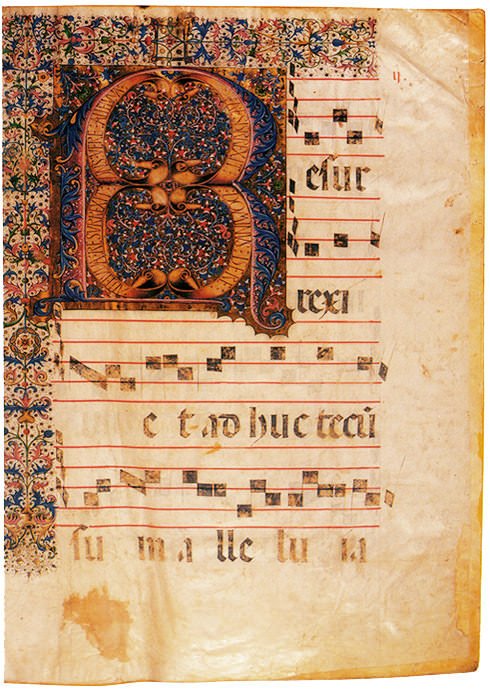 Resur
rexi
e t ad huc tecū
su m a lle lu ia